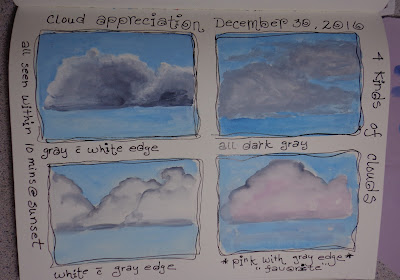 Cloud appreciation December 30, 2016
all seen within 10 mins @ sunset
4 kinds of clouds
gray c̄ white edge
all dark gray
white c̄ gray edge
* pink with gray edge *
"favorite"